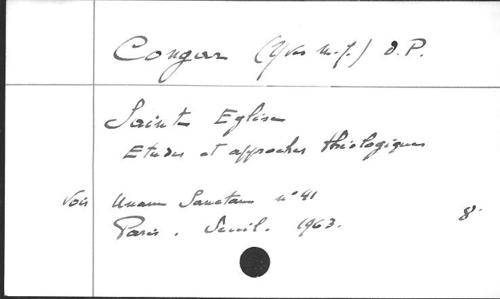 Congar (Yves M.-J.) O.P.
Sainte Eglise
Etudes et approches théologiques
Voir Unam Sanctam n° 41
Paris. Seuil. 1963. 8°